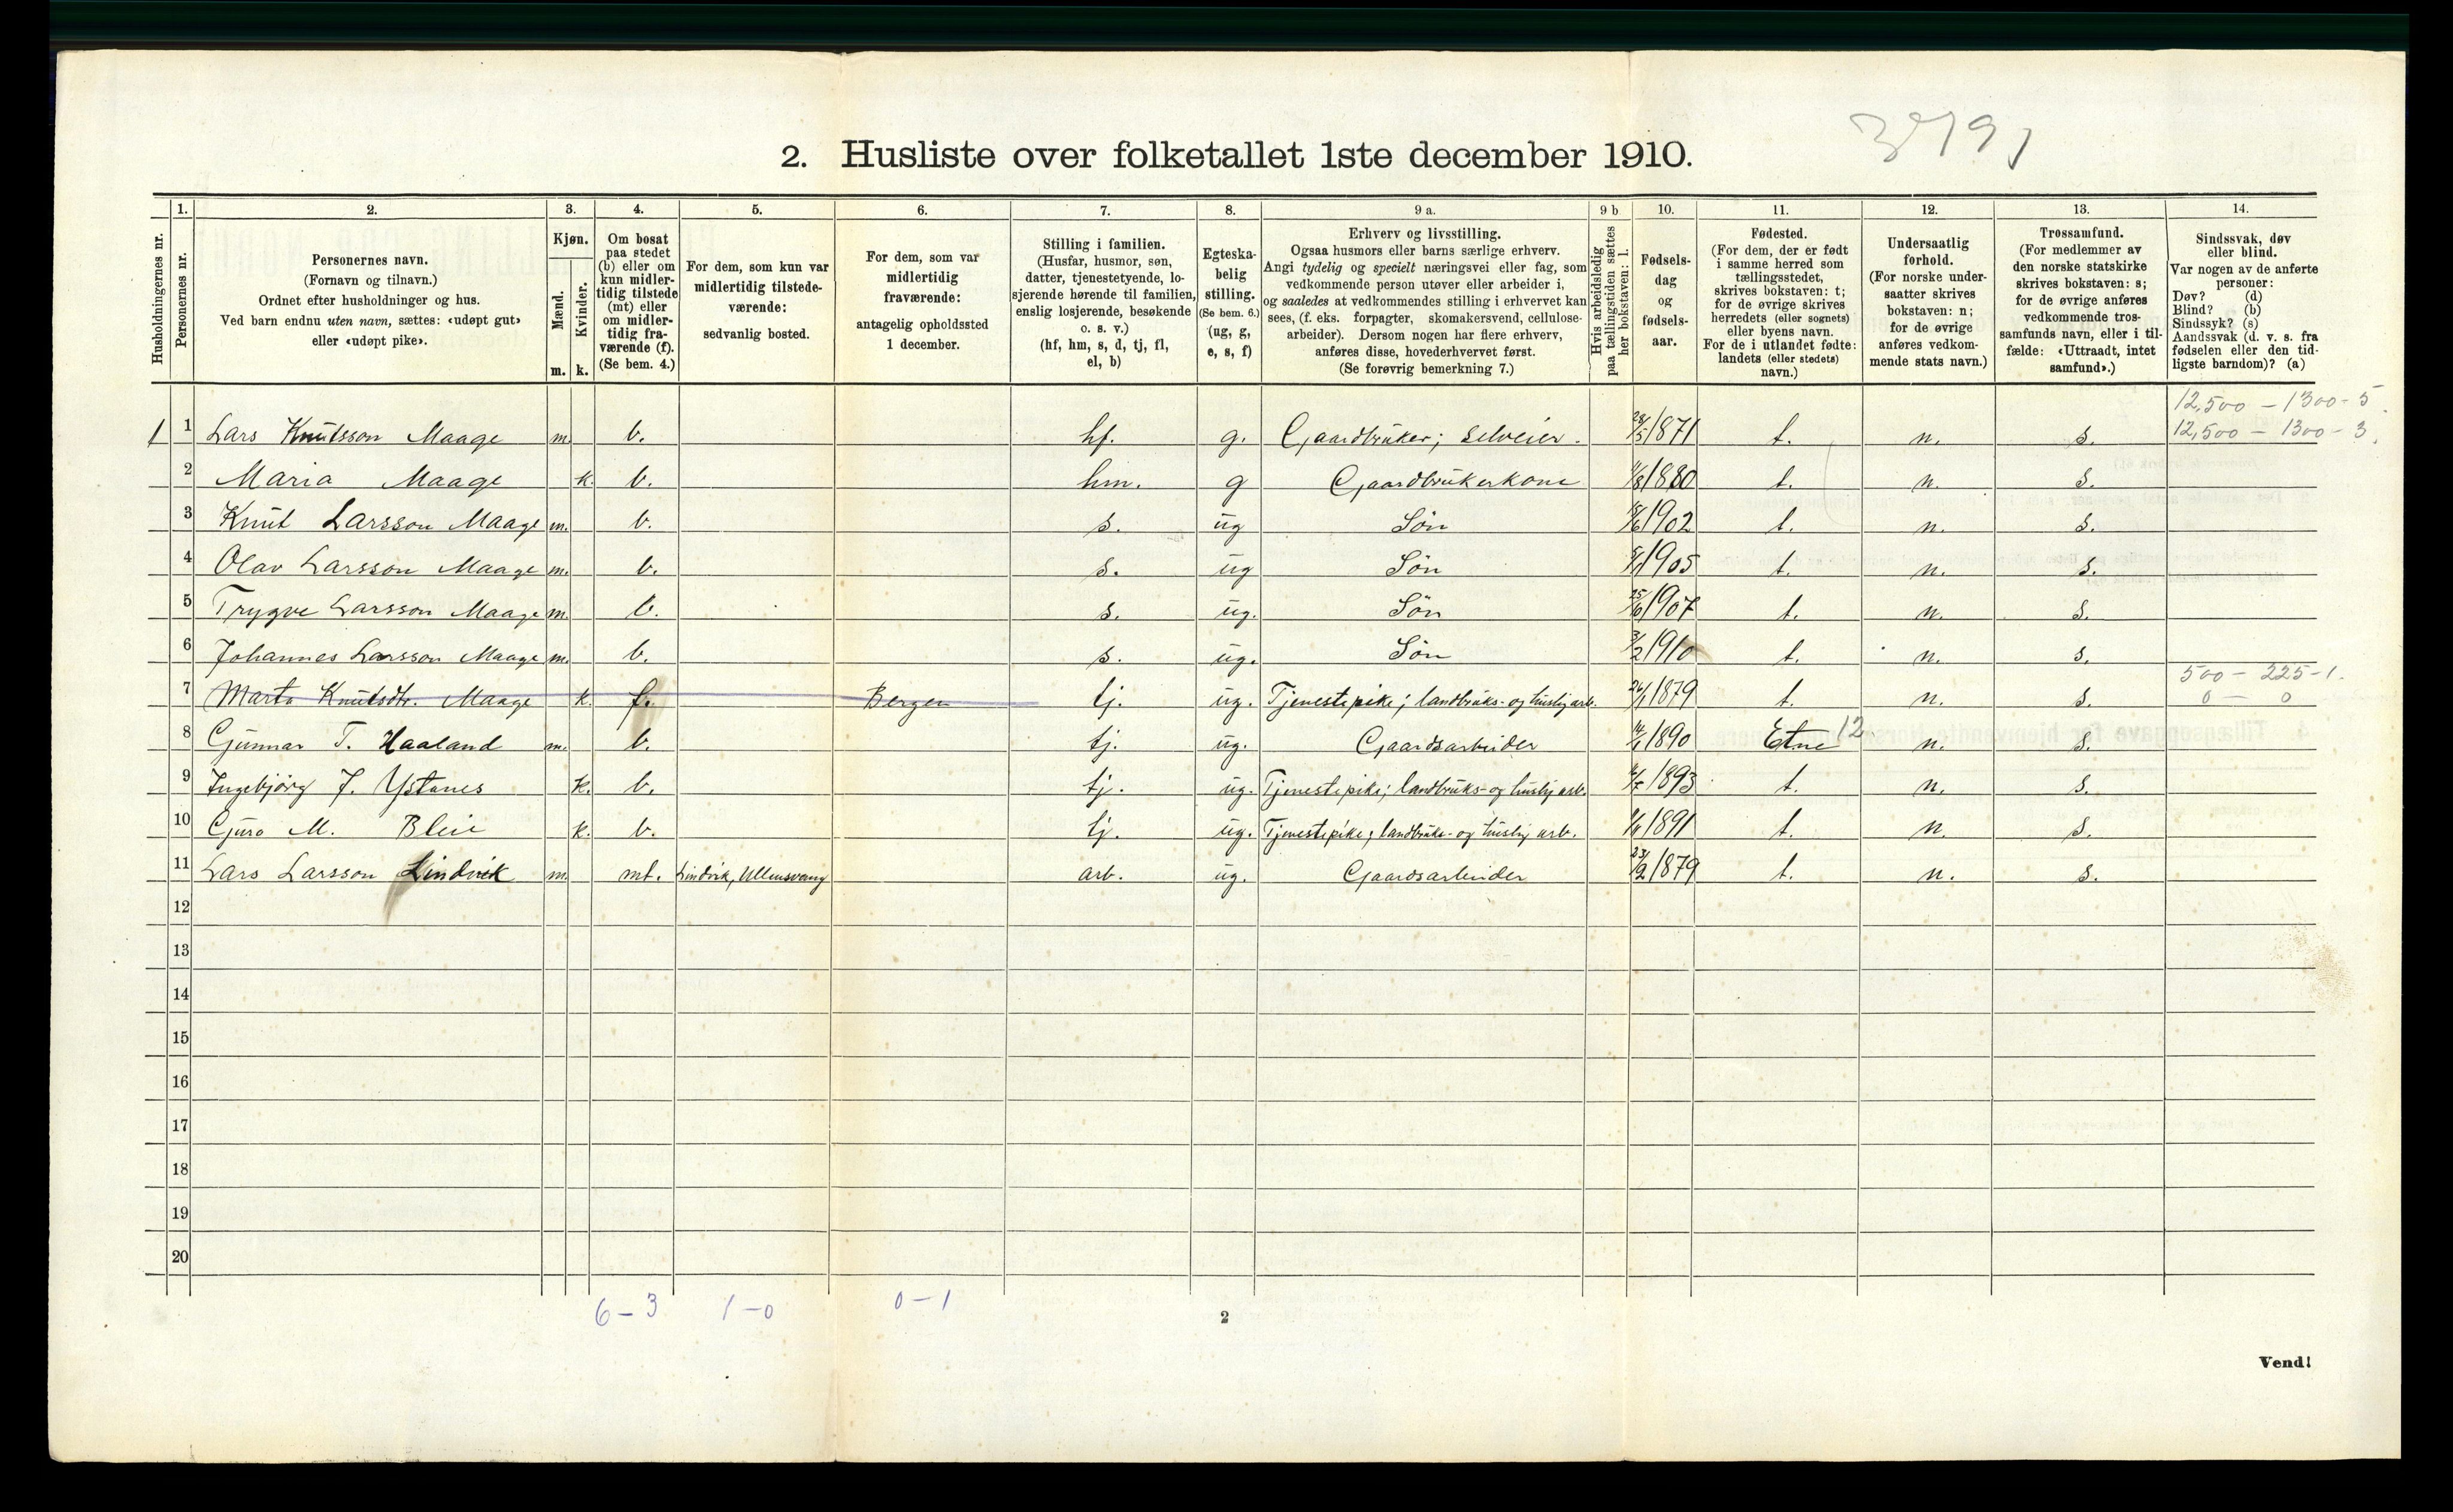 2. Husliste over folketallet 1ste december 1910.
Husholdningernes nr.
1. Personernes nr.
2. Personernes navn.
(Fornavn og tilnavn.)
Ordnet efter husholdninger og hus.
Ved barn endnu uten navn, sættes: «udøpt gut»
eller «udøpt pike».
3. Kjøn.
Mænd. m.
Kvinder. k.
4. Om bosat
paa stedet
(b) eller om
kun midler-
tidig tilstede
(mt) eller
om midler-
tidig fra-
værende (f).
(Se bem. 4.)
5. For dem, som kun var
midlertidig tilstede-
værende:
sedvanlig bosted.
6. For dem, som var
midlertidig
fraværende:
antagelig opholdssted
1 december.
7. Stilling i familien.
(Husfar, husmor, søn,
datter, tjenestetyende, lo-
sjerende hørende til familien,
enslig losjerende, besøkende
o. s. v.)
(hf, hm, s, d, tj, fl,
el, b)
8. Egteska-
belig
stilling.
(Se bem. 6.)
(ug, g,
e, s, f)
9 a. Erhverv og livsstilling.
Ogsaa husmors eller barns særlige erhverv.
Angi tydelig og specielt næringsvei eller fag, som
vedkommende person utøver eller arbeider i,
og saaledes at vedkommendes stilling i erhvervet kan
sees, (f. eks. forpagter, skomakersvend, cellulose-
arbeider). Dersom nogen har flere erhverv,
anføres disse, hovederhvervet først.
(Se forøvrig bemerkning 7.)
9 b Hvis arbeidsledig
paa tællingstiden sættes
her bokstaven: l.
10. Fødsels-
dag
og
fødsels-
aar.
11. Fødested.
(For dem, der er født
i samme herred som
tællingsstedet,
skrives bokstaven: t;
for de øvrige skrives
herredets (eller sognets)
eller byens navn.
For de i utlandet fødte:
landets (eller stedets)
navn.)
12. Undersaatlig
forhold.
(For norske under-
saatter skrives
bokstaven: n;
for de øvrige
anføres vedkom-
mende stats navn.)
13. Trossamfund.
(For medlemmer av
den norske statskirke
skrives bokstaven: s;
for de øvrige anføres
vedkommende tros-
samfunds navn, eller i til-
fælde: «Uttraadt, intet
samfund».)
14. Sindssvak, døv
eller blind.
Var nogen av de anførte
personer:
Døv? (d)
Blind? (b)
Sindssyk? (s)
Aandssvak (d. v. s. fra
fødselen eller den tid-
ligste barndom)? (a)
12,500 – 1300 – 5.
1 1 Lars Knutsson Maage m. b. hf. g. Gaardbruker; selveier. 28/5 1871 t. n. s. 12,500 – 1300 – 3.
2 Maria Maage k. b. hm. g Gaardbrukerkone 1880 t. n. s.
3 Knut Larsson Maage m. b. s. ug Søn 1902 t. n. s.
4 Olav Larsson Maage m. b. s. ug Søn 1905 t. n. s.
5 Trygve Larsson Maage m. b. s. ug. Søn 1907 t. n. s.
6 Johannes Larsson Maage m. b. s. ug. Søn 3/2 1910 t. n. s.
500 – 225 – 1.
7 Marta Knutsdtr. Maage k. f. Bergen tj. ug. Tjenestepike; landbruks- og huslig arb. 26/1 1879 t. n. s. 0 – 0
8 Gunnar T. Haaland m. b. tj. ug. Gaardsarbeider 1890 Etne 12 n. s.
9 Ingebjörg J. Ystanes k. b. tj. ug. Tjenestepike; landbruks- og huslig arb. 1893 t. n. s.
10 Guro M. Bleie k. b. tj. ug. Tjenestepike; landbruks- og huslig arb. 1891 t. n. s.
11 Lars Larsson Lindvik m. mt. Lindvik, Ullensvang arb. ug. Gaardsarbeider 23/2 1879 t. n. s.
12
13
14
15
16
17
18
19
20
6 – 3 1 – 0 0 – 1
2
Vend!